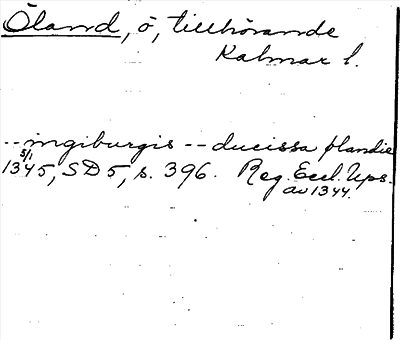 Öland, ö, tillhörande
Kalmar l.
-- ingiburgis -- ducissa ølandie
5/1
1345, SD 5, s. 396. Reg. Eccl. Ups.
av 1344.